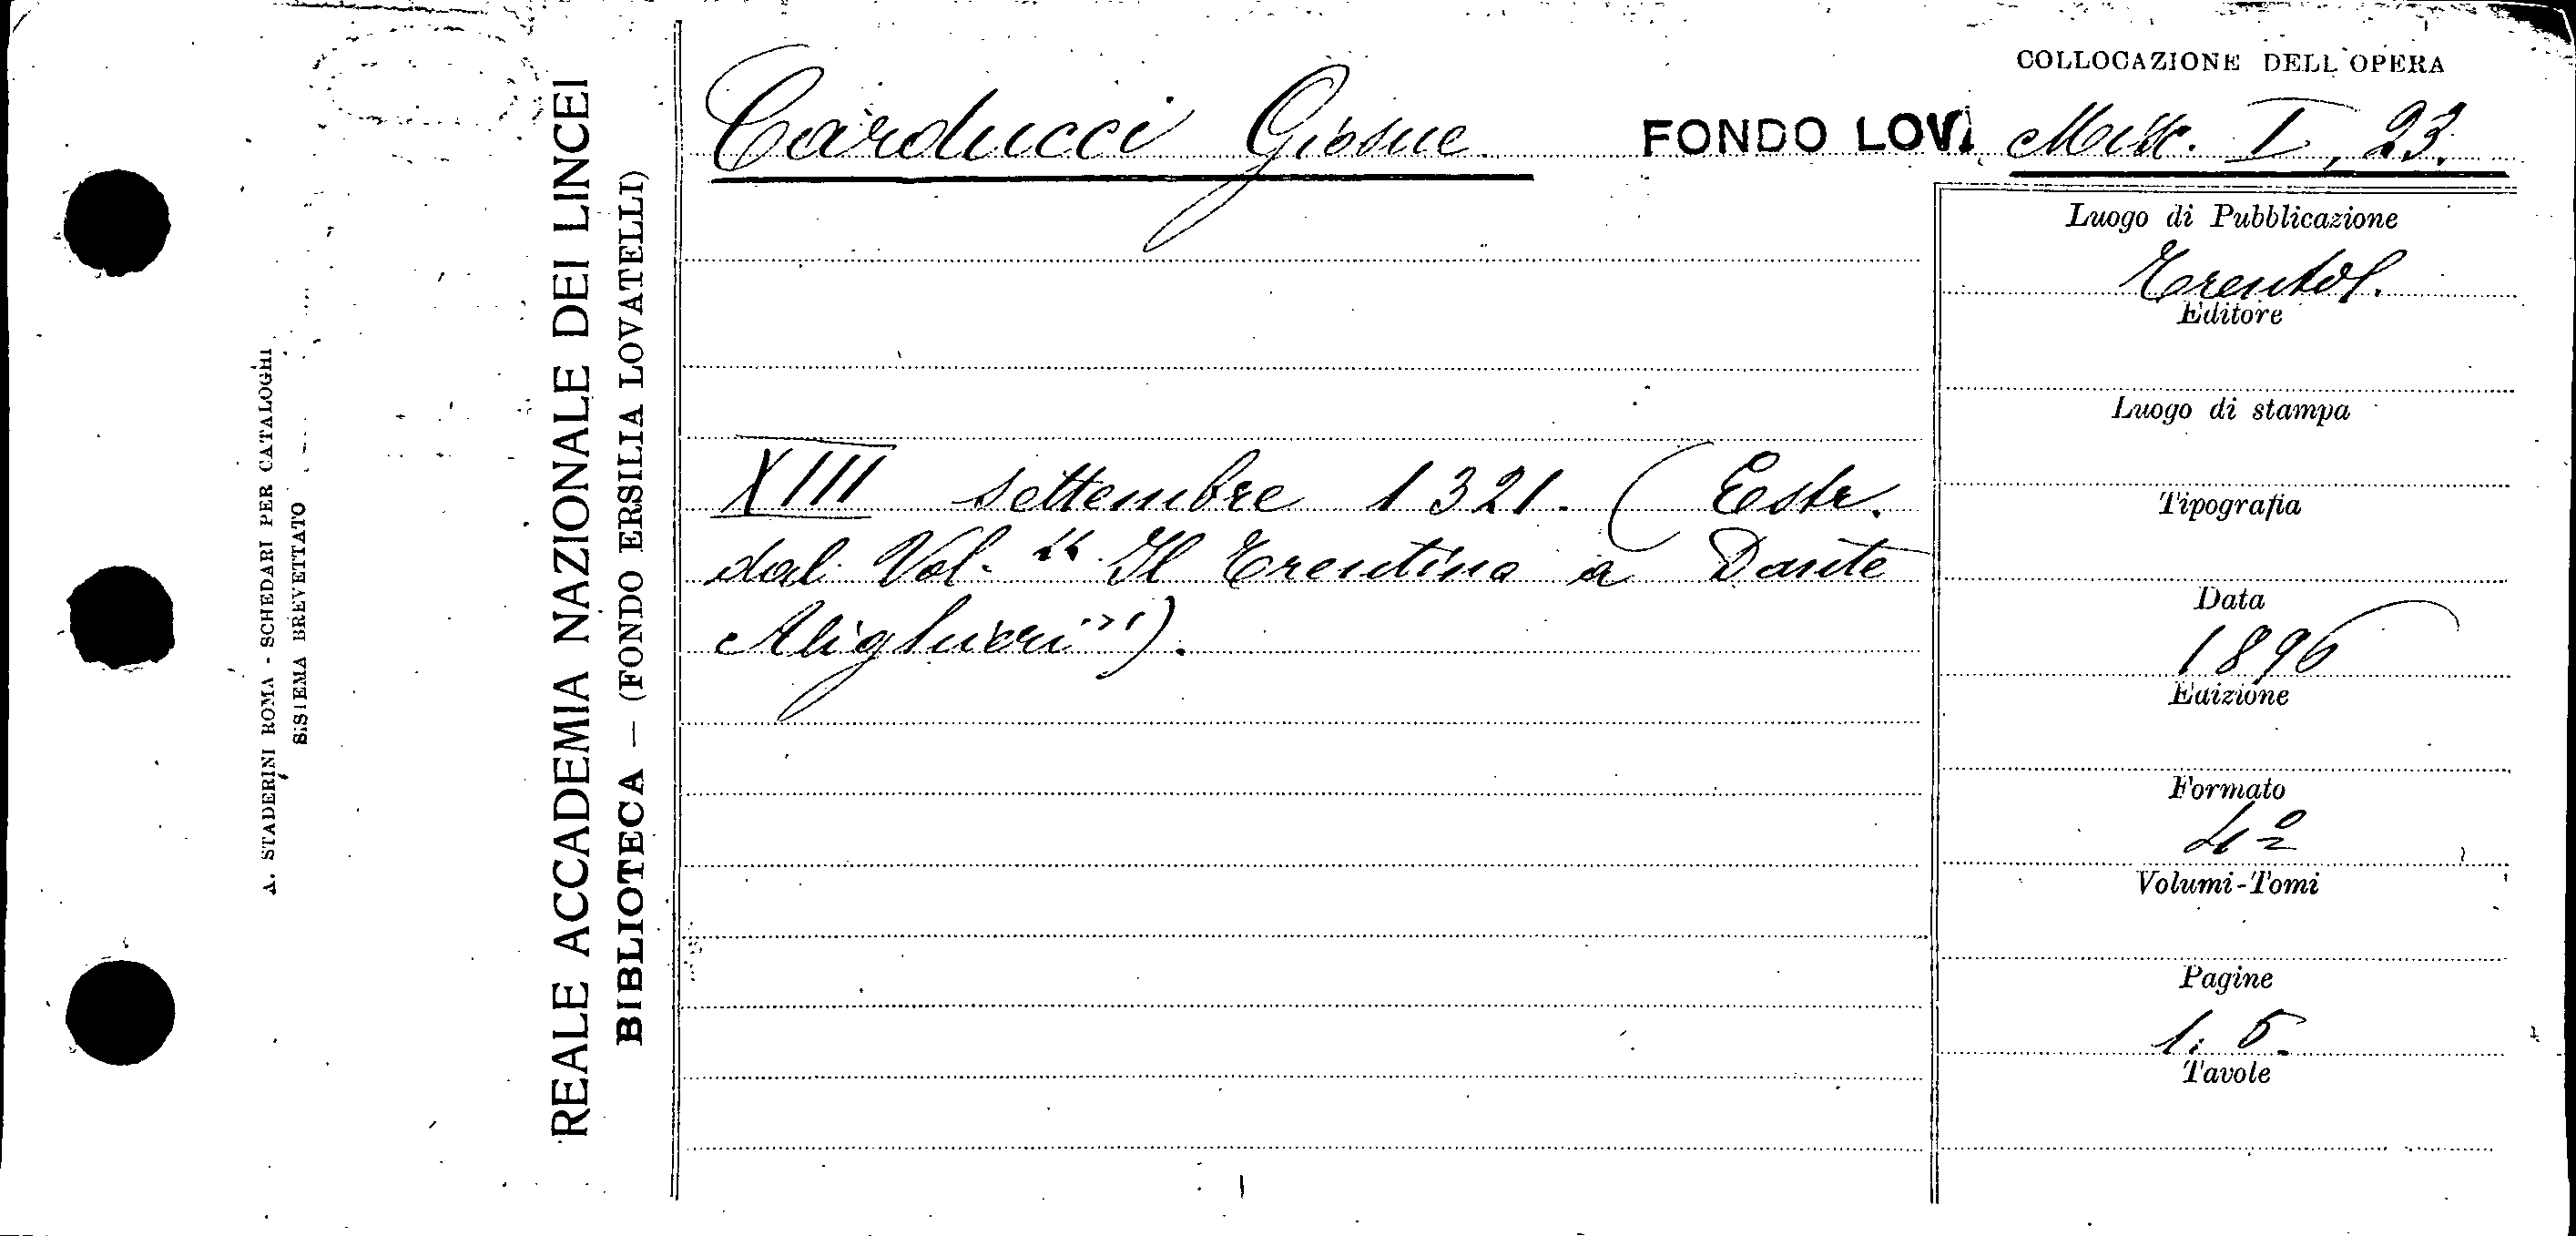 COLLOCAZIONE DELL'OPERA
Carducci Giosue FONDO LOV. Misc. I, 23.
XIII settembre 1321. (Estr.
dal Vol. "Il Trentino a Dante
Alighieri").
Luogo di Pubblicazione
Editore
Luogo di stampa
Tipografia
Data
1896
Edizione
Formato
4º
Volumi-Tomi
Pagine
1. 5.
Tavole
REALE ACCADEMIA NAZIONALE DEI LINCEI
BIBLIOTECA — (FONDO ERSILIA LOVATELLI)
A. STADERINI ROMA - SCHEDARI PER CATALOGHI
SISTEMA BREVETTATO